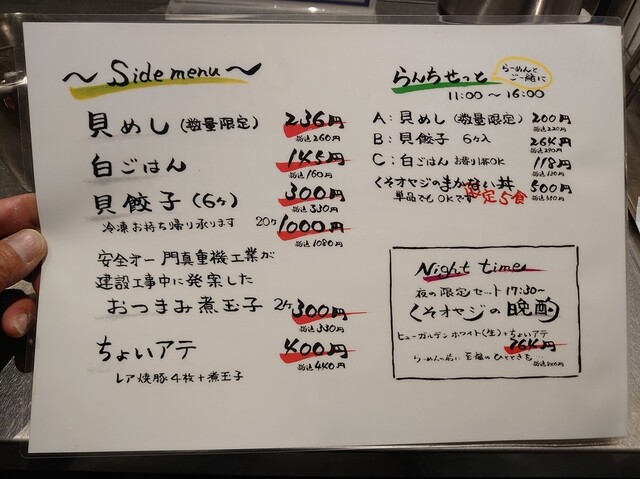 ～ Side menu ～
貝めし (数量限定) 236円
税込260円
白ごはん 145円
税込160円
貝餃子 (6ケ) 300円
税込330円
冷凍お持ち帰り承ります 20ケ 1000円
税込1080円
安全オー門真重機工業が
建設工事中に発案した
おつまみ煮玉子 2ケ 300円
税込330円
ちょいアテ 400円
税込440円
レア焼豚4枚+煮玉子
らんちせっと
らーめんと
ご一緒に
11:00 ～ 16:00
A: 貝めし (数量限定) 200円
税込220円
B: 貝餃子 6ケ入 264円
税込290円
C: 白ごはん お替り1杯OK 118円
税込130円
くそオヤジのまかない丼 500円
単品でもOKです 限定5食 税込550円
Night time
夜の限定セット 17:30～
くそオヤジの晩酌
ヒューガルデンホワイト(生)+ちょいアテ
764円
らーめんの前に 至福のひとときを…